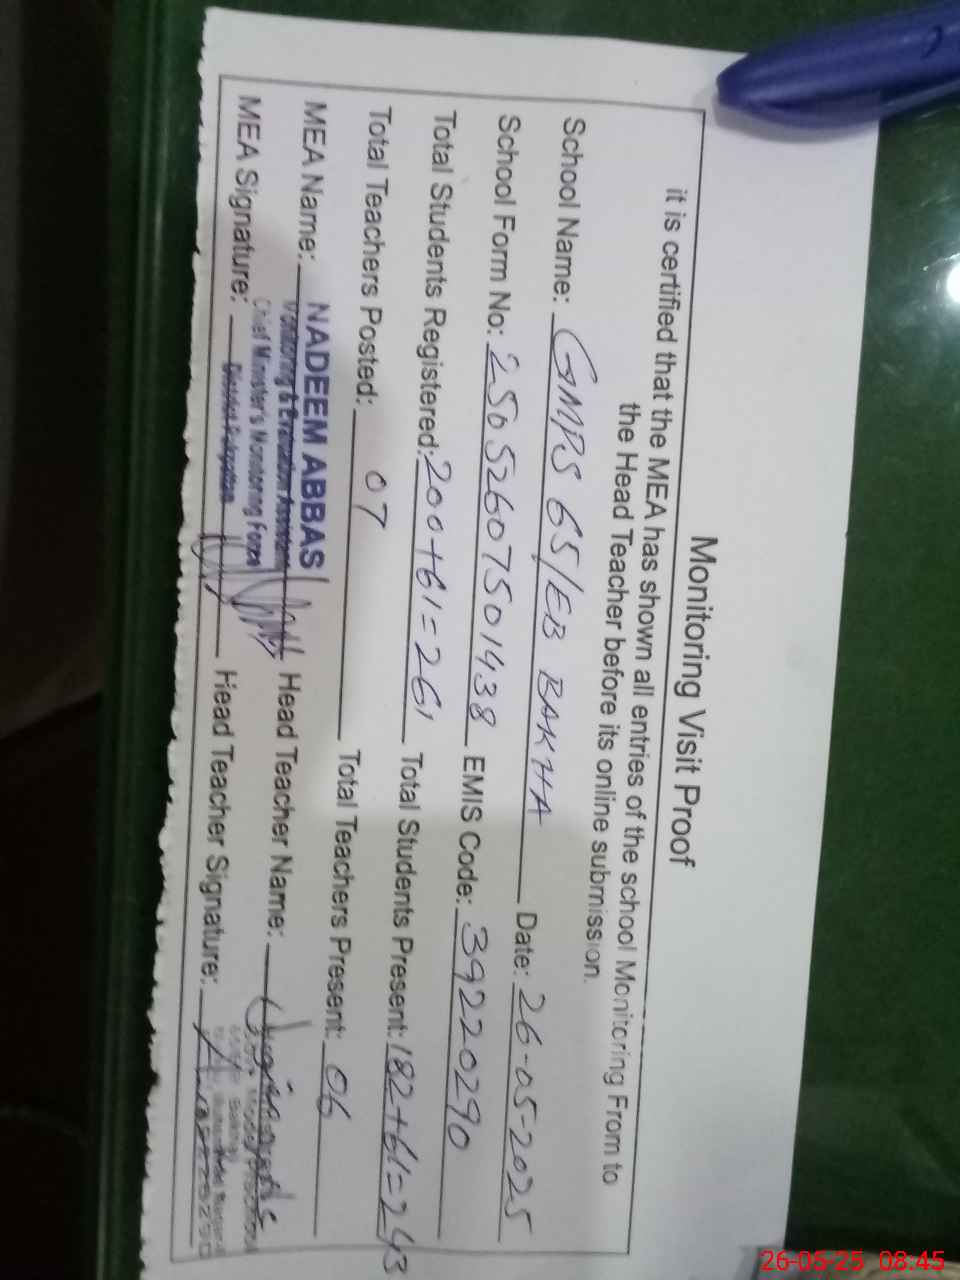 Monitoring Visit Proof
it is certified that the MEA has shown all entries of the school Monitoring From to
the Head Teacher before its online submission.
School Name: GMPS 65/EB BAKHA Date: 26-05-2025
School Form No: 25052607501438 EMIS Code: 39220290
Total Students Registered: 200+61=261 Total Students Present: 182+61=243
Total Teachers Posted: 07 Total Teachers Present: 06
MEA Name: NADEEM ABBAS Head Teacher Name:
Monitoring & Evaluation Assistant
Chief Minister's Monitoring Force
MEA Signature: District Pakpattan Head Teacher Signature:
26-05-25 08:45